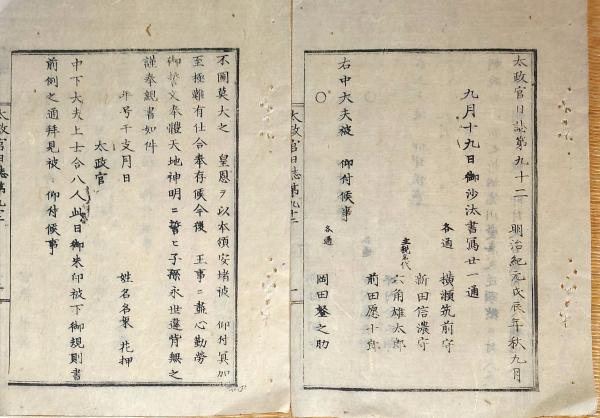 太政官日誌第九十二 明治紀元戊辰年秋九月
九月十九日御沙汰書寫廿一通
各通 横瀬筑前守
新田信濃守
主税名代
六角雄太郎
前田愿十郎
右中大夫被 仰付候事
○
各通 岡田鍫之助
太政官日誌第九十二
不圖莫大之 皇恩ヲ以本領安堵被 仰付冥加
至極難有仕合奉存候今後 王事ニ盡心勤勞
御誓文奉體天地神明ニ誓ヒ子孫永世違背無之
謹奉親書如件
年号干支月日 姓名名乗 花押
太政官
中下大夫上士合八人此日御朱印被下御規則書
前例之通拜見被 仰付候事
太政官日誌第九十二